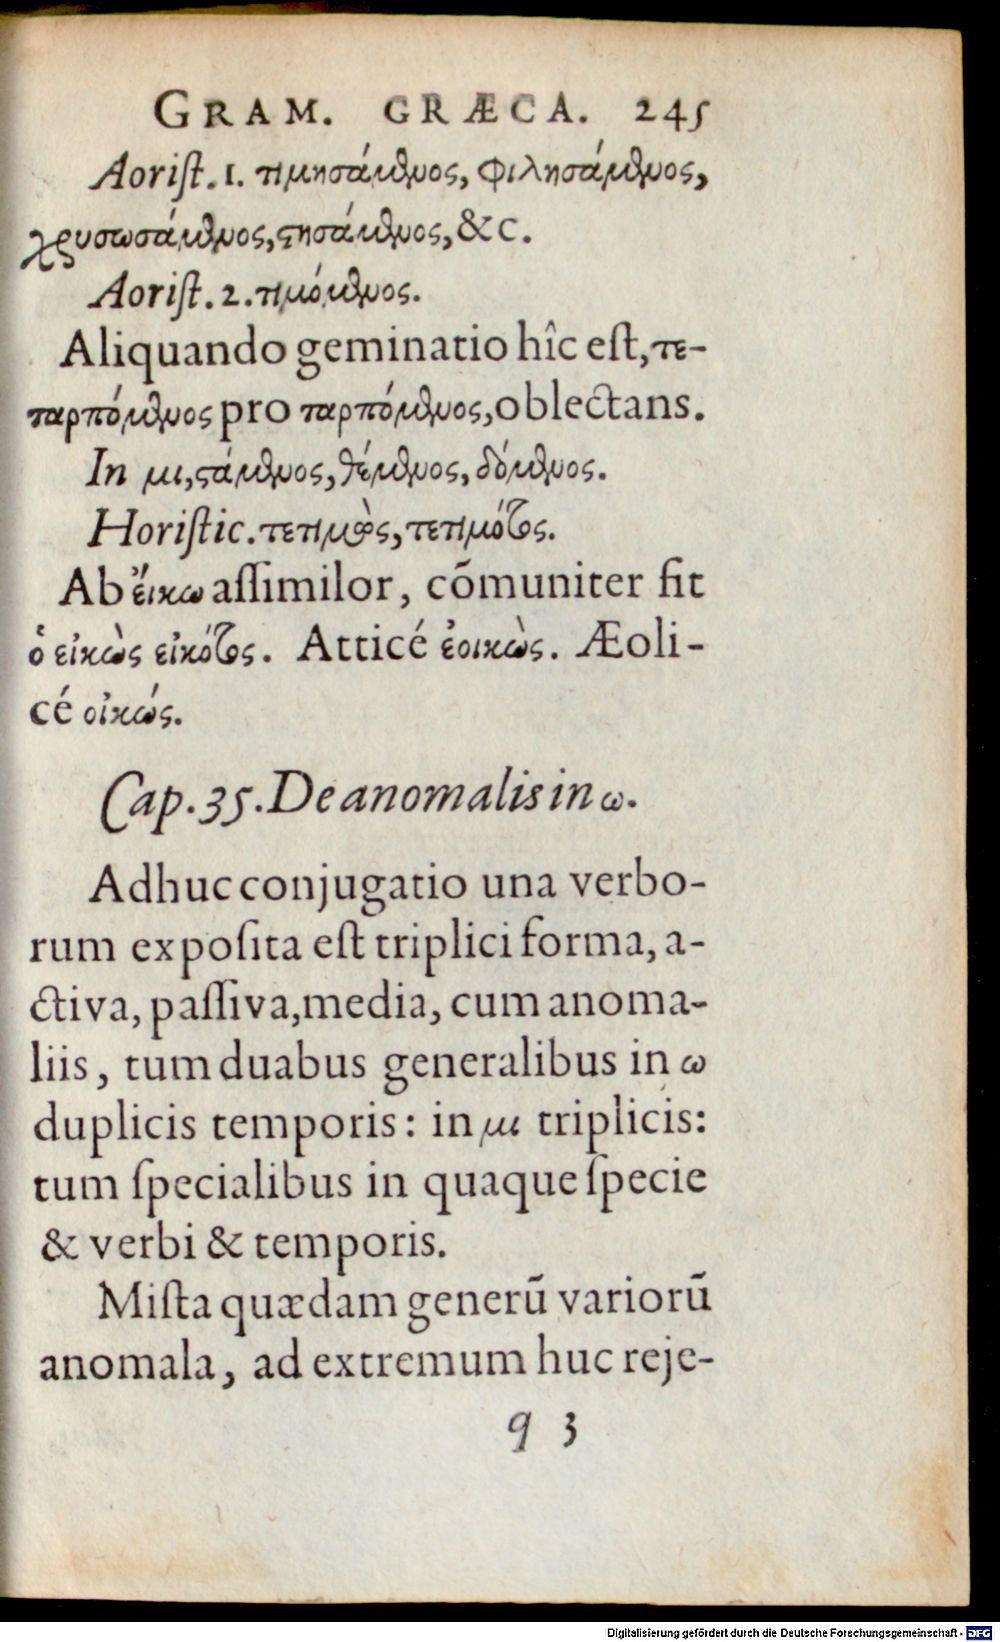 GRAM. GRÆCA. 245
Aoriſt. 1. τιμησάμενος, φιλησάμενος,
χρυσωσάμενος, ςησάμενος, &c.
Aoriſt. 2. τιμόμενος.
Aliquando geminatio hîc eſt, τε-
ταρπόμενος pro ταρπόμενος, oblectans.
In μι, ςάμενος, θέμενος, δόμενος.
Horiſtic. τετιμὼς, τετιμότος.
Ab εἴκω aſſimilor, cõmuniter fit
ὁ εἰκὼς εἰκότος. Atticé ἐοικὼς. Æoli-
cé οἰκώς.
Cap. 35. De anomalis in ω.
Adhuc conjugatio una verbo-
rum expoſita eſt triplici forma, a-
ctiva, paſſiva, media, cum anoma-
liis, tum duabus generalibus in ω
duplicis temporis: in μι triplicis:
tum ſpecialibus in quaque ſpecie
& verbi & temporis.
Miſta quædam generũ variorũ
anomala, ad extremum huc reje-
q 3
Digitalisierung gefördert durch die Deutsche Forschungsgemeinschaft - DFG